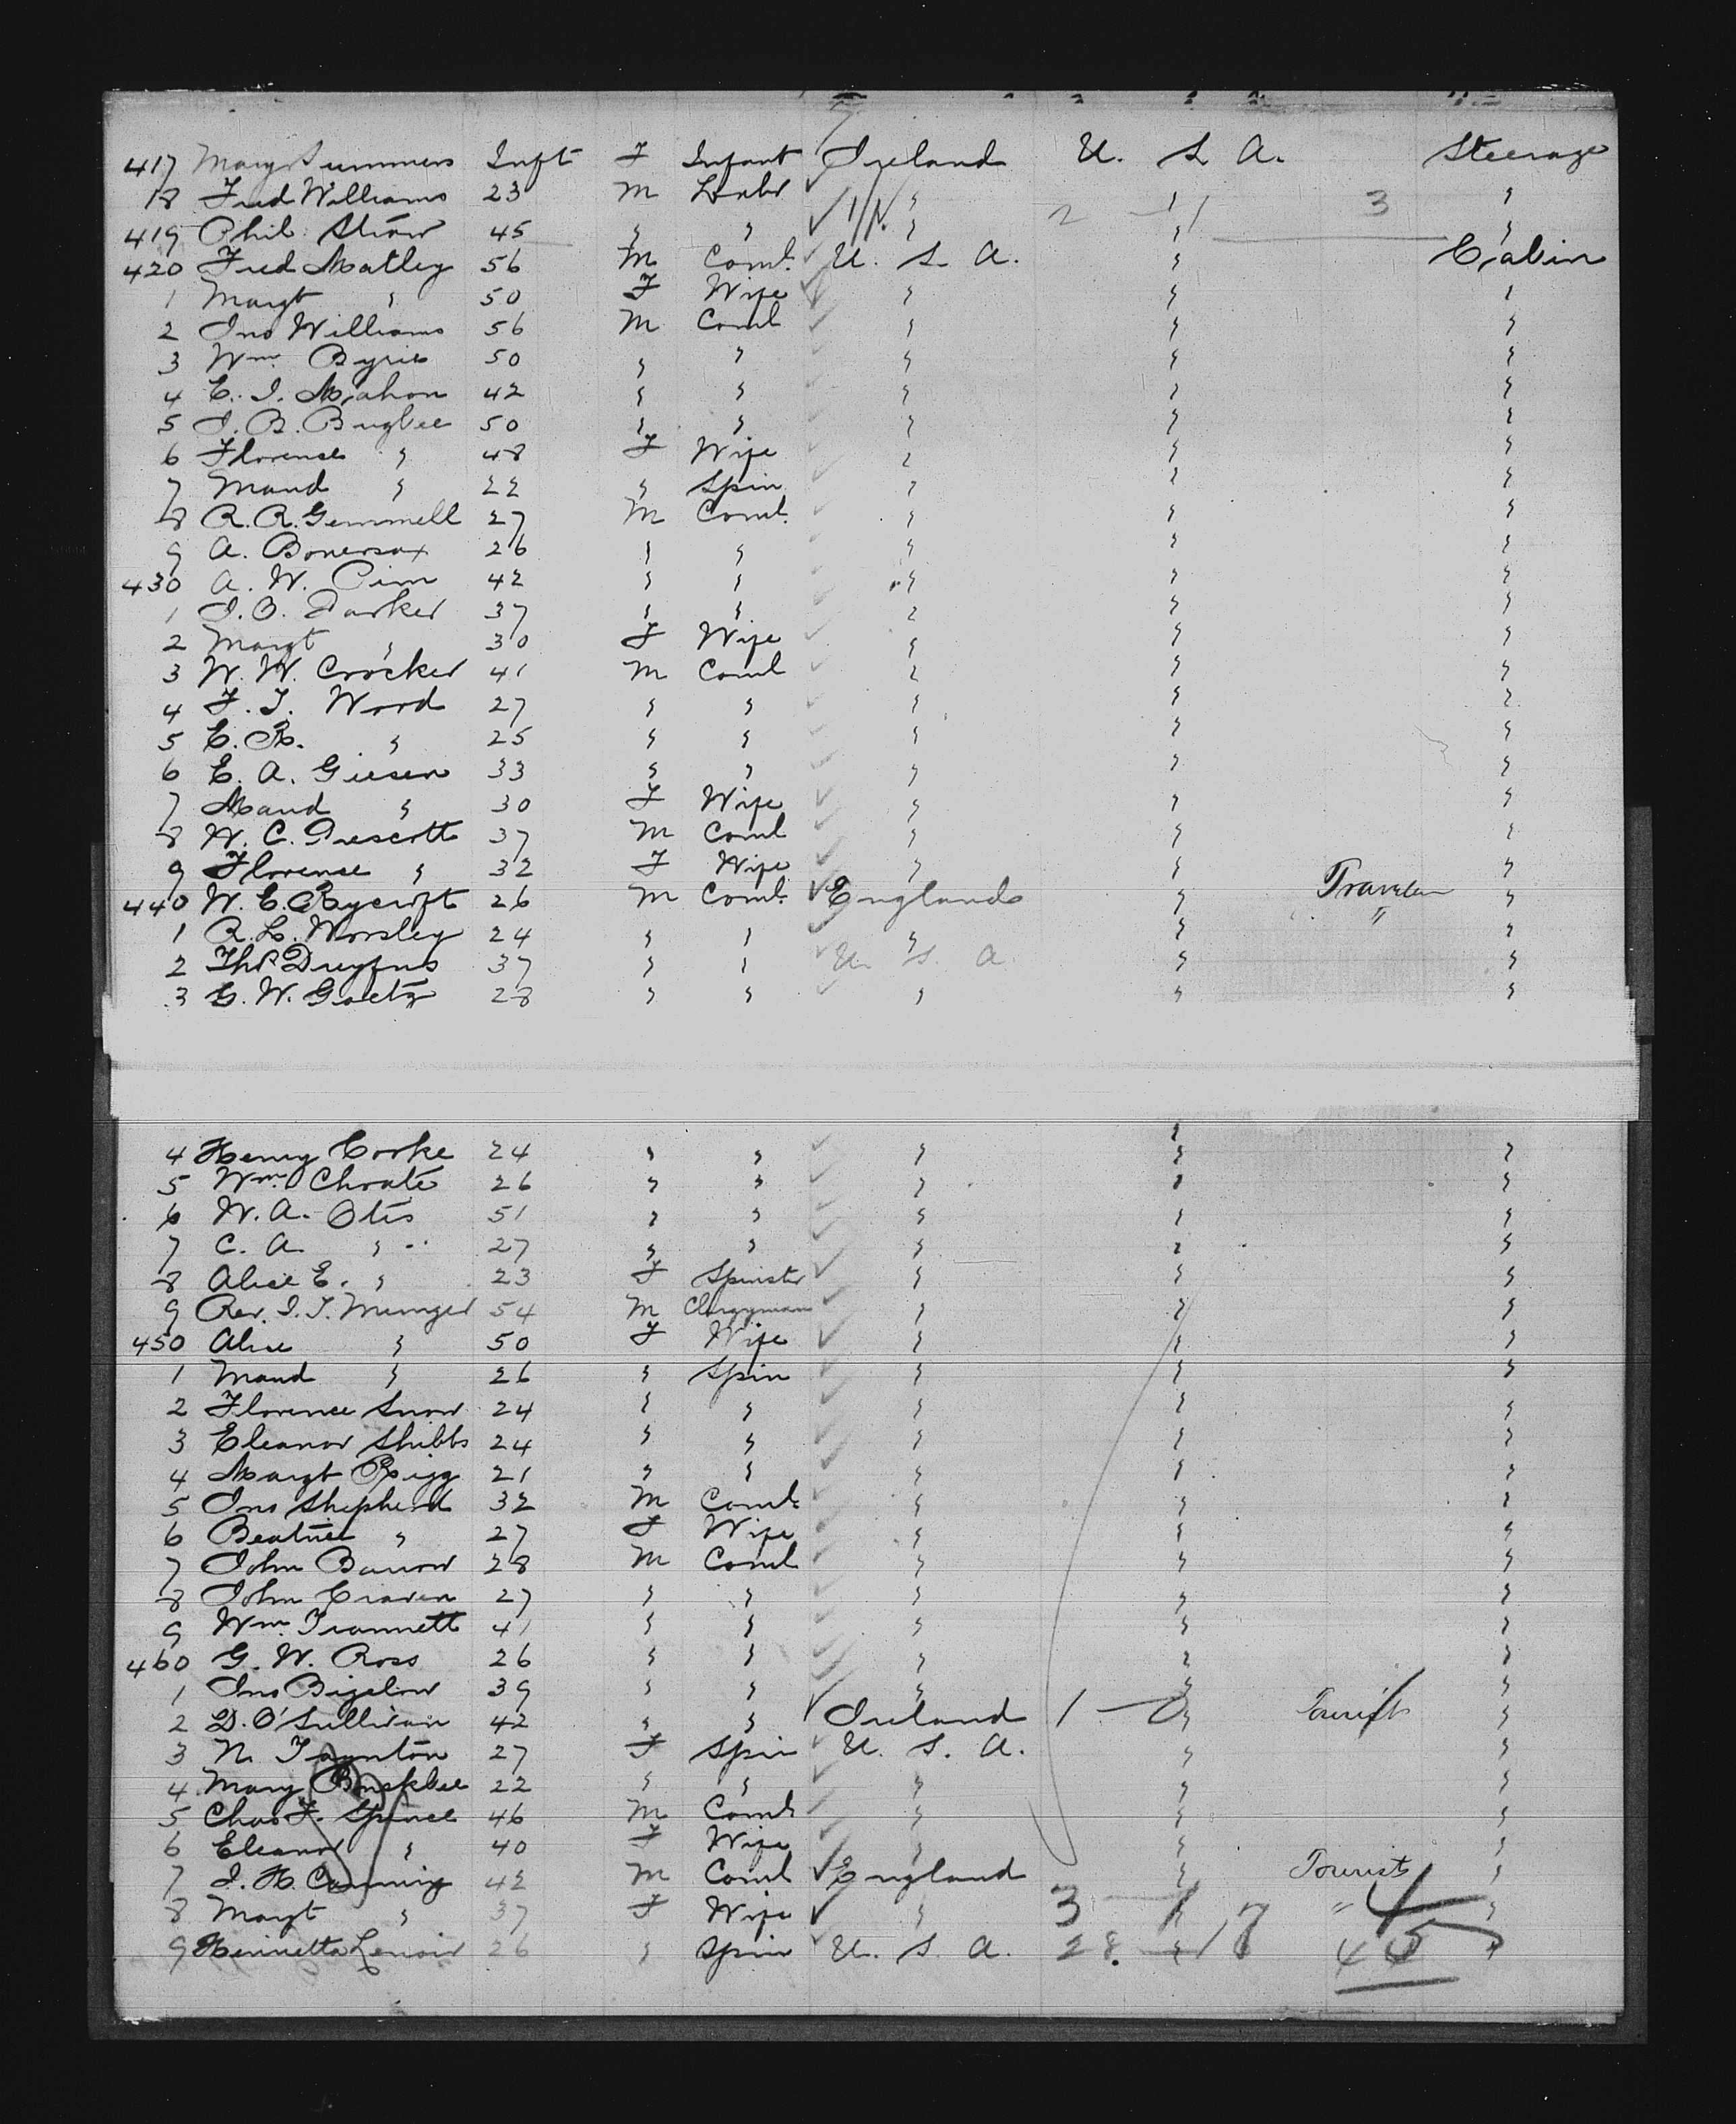 417 Margt Summers Inft F Infant Ireland U. S. A. Steerage
18 Fred Williams 23 M Labr " " "
419 Phil 45 " " " 2 - 1 3 "
420 Fred Matley 56 M Coml. U. S. A. " Cabin
1 Margt " 50 F Wife " " "
2 Jno Williams 56 M Coml " " "
3 Wm. Byrie 50 " " " " "
4 E. J. Mahon 42 " " " " "
5 J. B. Bugbee 50 " " " " "
6 Florence " 48 F Wife " " "
7 Maud " 22 " Spin " " "
8 R. R. Gemmell 27 M Coml. " " "
9 A. 26 " " " " "
430 A. W. Pim 42 " " " " "
1 J. O. Parker 37 " " " " "
2 Margt " 30 F Wife " " "
3 W. W. Crocker 41 M Coml " " "
4 F. J. Wood 27 " " " " "
5 E. R. " 25 " " " " "
6 E. A. Giesen 33 " " " " "
7 Maud " 30 F Wife " " "
8 W. C. Prescott 37 M Coml " " "
9 Florence " 32 F Wife " " "
440 W. E. Rycroft 26 M Coml. England " Traveler "
1 R. L. Worsley 24 " " " " " "
2 Dreyfus 37 " " U. S. A. " "
3 G. W. Goetz 28 " " " " "
4 Henry Cooke 24 " " " " "
5 Wm. Choate 26 " " " " "
6 W. A. Otis 51 " " " " "
7 C. A. " 27 " " " " "
8 Alice E. " 23 F Spinster " " "
9 Rev. J. T. Munger 54 M Clergyman " " "
450 Alice " 50 F Wife " " "
1 Maud " 26 " Spin " " "
2 Florence Snow 24 " " " " "
3 Eleanor Shibbs 24 " " " " "
4 Margt Rigg 21 " " " " "
5 Jno Shepherd 32 M Coml. " " "
6 Beatrice " 27 F Wife " " "
7 John Barrow 28 M Coml " " "
8 John Craven 27 " " " " "
9 Wm. Trannett 41 " " " " "
460 G. W. Ross 26 " " " " "
1 Jno Bigelow 39 " " " " "
2 D. O'Sullivan 42 " " Ireland 1 - " Tourist "
3 N. Taynton 27 F Spin U. S. A. " "
4 Mary 22 " " " " "
5 Chas F. Spence 46 M Coml. " " "
6 Eleanor " 40 F Wife " " "
7 J. H. Cumming 42 M Coml England " Tourist "
8 Margt " 37 F Wife " 3 - 1 " " 4 "
9 Henrietta Lenoir 26 " Spin U. S. A. 28. - 17 45 "